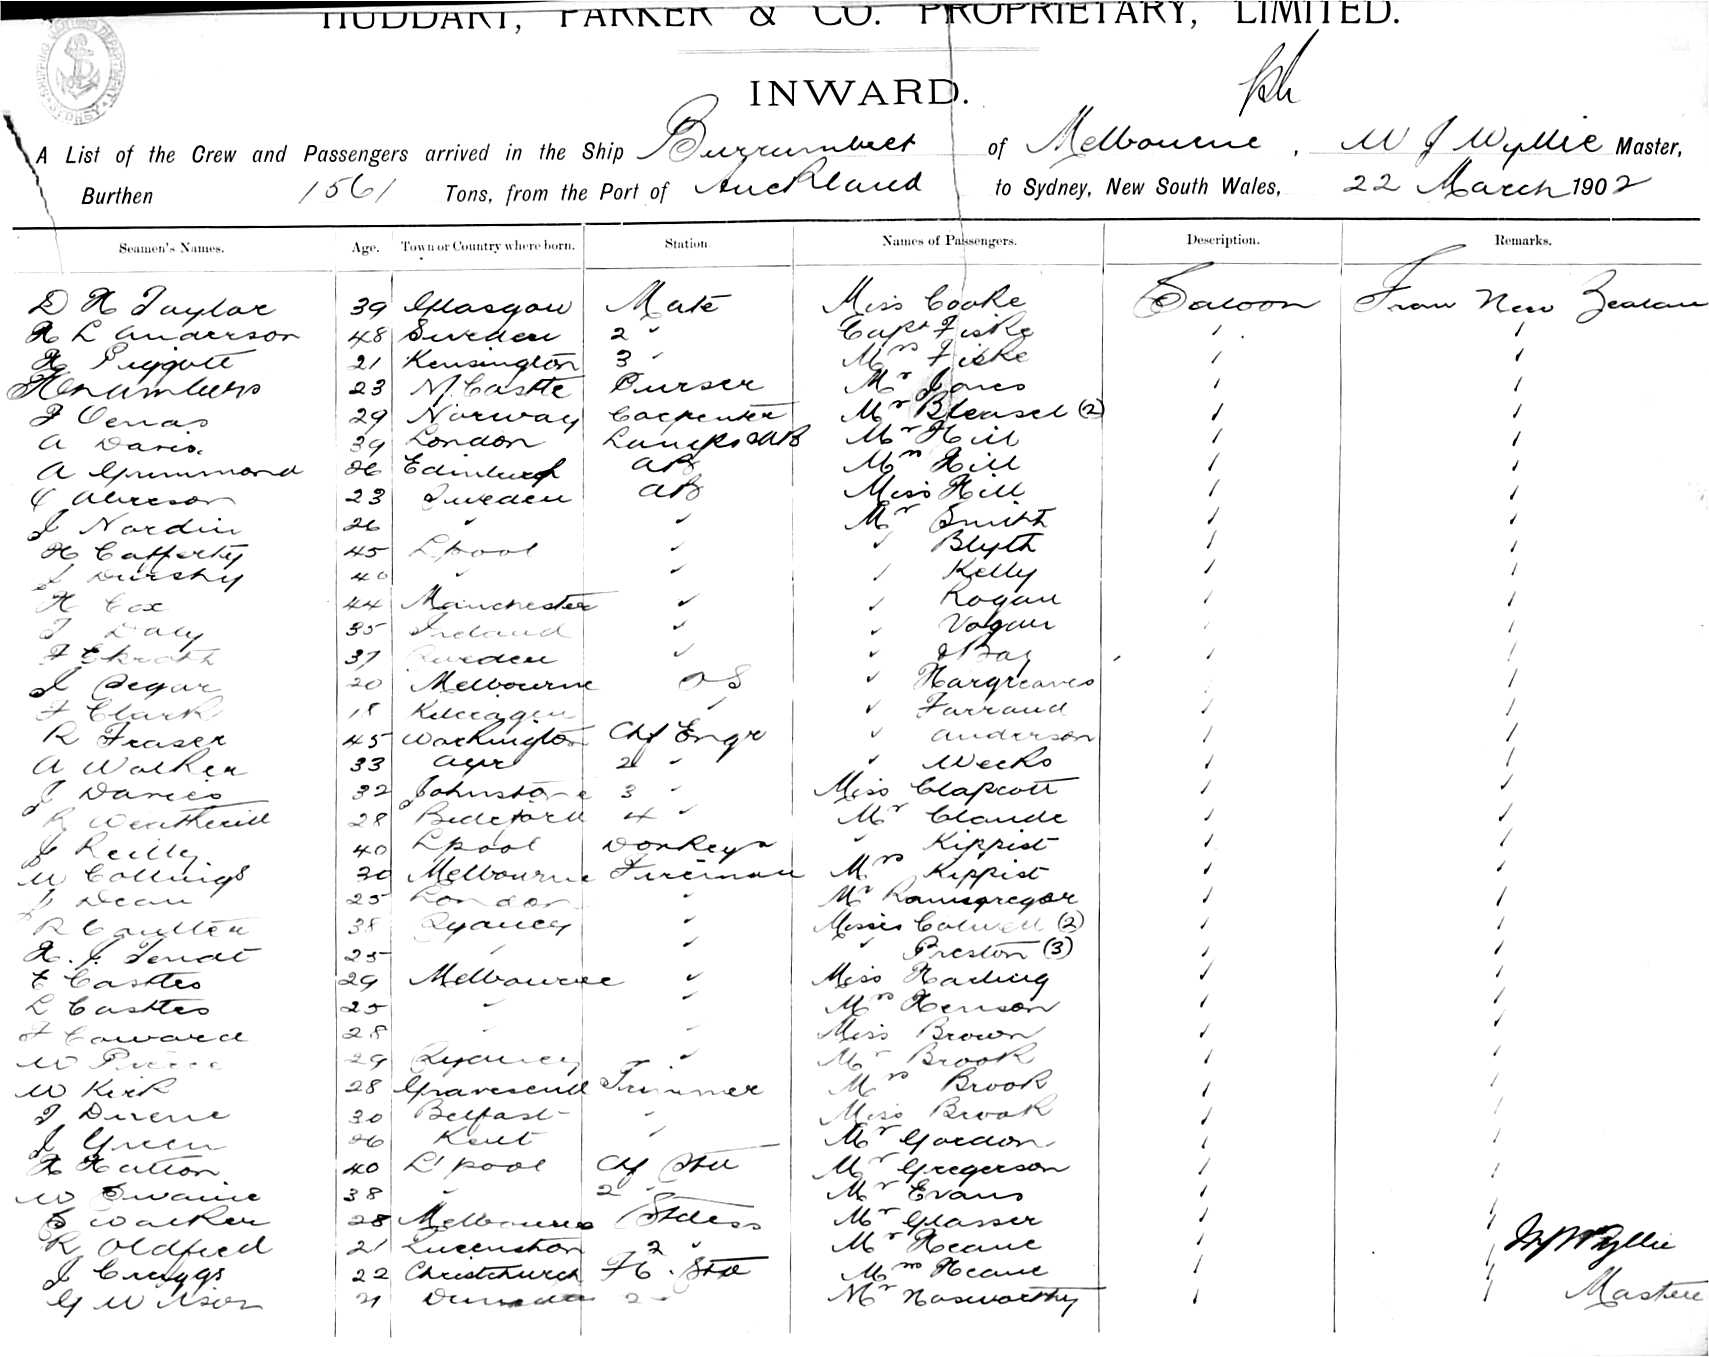 HUDDART, PARKER & CO. PROPRIETARY, LIMITED.
INWARD.
A List of the Crew and Passengers arrived in the Ship Burrumbeet of Melbourne, W J Wyllie Master,
Burthen 1561 Tons, from the Port of Auckland to Sydney, New South Wales, 22 March 1902
Seamen's Names. Age. Town or Country where born. Station Names of Passengers. Description. Remarks.
D H Taylor 39 Glasgow Mate Miss Cooke Saloon From New
H L Anderson 48 Sweden 2 " Capt Fiske
H Piggott 21 Kensington 3 " Mrs Fiske
23 N. Castle Purser Mr Jones
J Venas 29 Norway Carpenter Mr Bleasel (2)
A Davis 39 London Lamps & AB Mr Hill
A Grummond 26 Edinburgh AB Mrs Hill
23 Sweden AB Miss Hill
J Nordin 26 " " Mr Smith
H Cafferty 45 L'pool " " Blyth
40 " " " Kelly
H Cox 44 Manchester " " Hogan
T Daly 35 Ireland " " Vogan
37 Sweden " "
J Segar 20 Melbourne OS " Hargreaves
F Clark 18 " " Farrand
R Fraser 45 Workington Chf Engr " Anderson
A Walker 33 Ayr 2 " " Weeks
J Davies 32 Johnstone 3 " Miss Clapcott
R Weatherill 28 Bideford 4 " Mr Claude
J Reilly 40 L'pool Donkeyn " Kippist
W Collings 30 Melbourne Fireman Mrs Kippist
J Dean 25 London " Mr
R Coulter 38 Sydney " Misses Colwell (2)
H. J. Tendt 25 " " " Preston (3)
E Castles 29 Melbourne " Miss Harding
L Castles 25 " " Mrs Henson
F Coward 28 " " Miss Brown
W Pierce 29 Sydney " Mr Brook
W Kirk 28 Gravesend Trimmer Mrs Brook
J Duene 30 Belfast " Miss Brook
J Green 26 Kent " Mr Gordon
H Hatton 40 L'pool Chf Std Mr Gregerson
W Swaine 38 " 2 " Mr Evans
E Walker 28 Melbourne Stdess Mr Glasser
R Oldfield 21 2 " Mr Keane W J Wyllie
J Griggs 22 Christchurch Mrs Keane Master
G Wilson 21 Dunedin 2 Mr Nosworthy